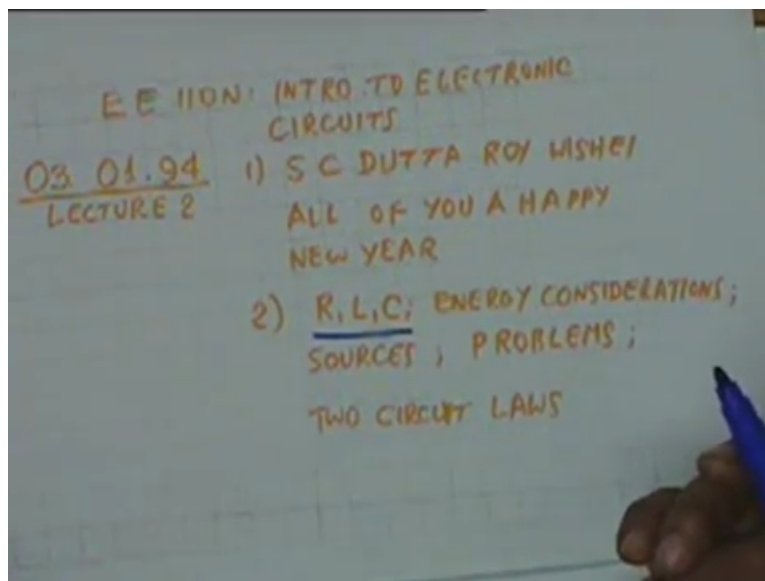 EE 110N: INTRO TO ELECTRONIC
CIRCUITS
03 01.94
LECTURE 2
1) S C DUTTA ROY WISHES
ALL OF YOU A HAPPY
NEW YEAR
2) R, L, C; ENERGY CONSIDERATIONS;
SOURCES; PROBLEMS;
TWO CIRCUIT LAWS